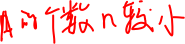 A的个数n较少